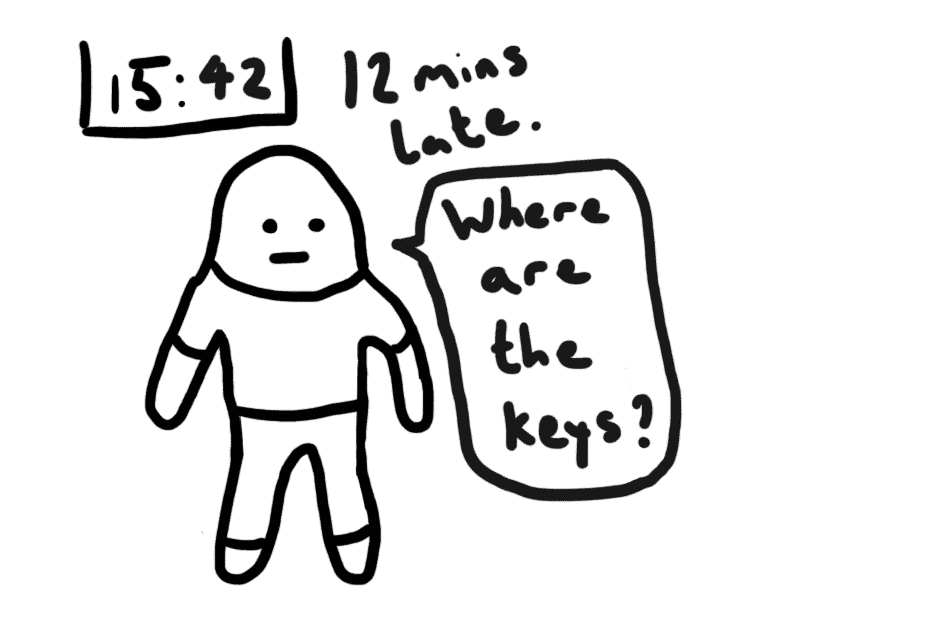 15:42
12 mins
late.
Where
are
the
keys?